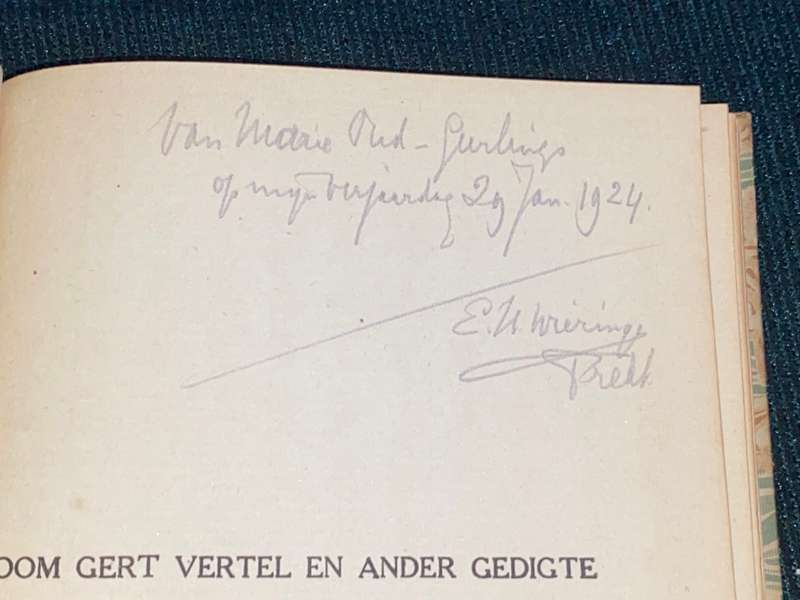 Van Marie Oud-Geerlings
op mijn verjaardag 29 Jan. 1924.
E.H. Wieringa
Predt
OOM GERT VERTEL EN ANDER GEDIGTE